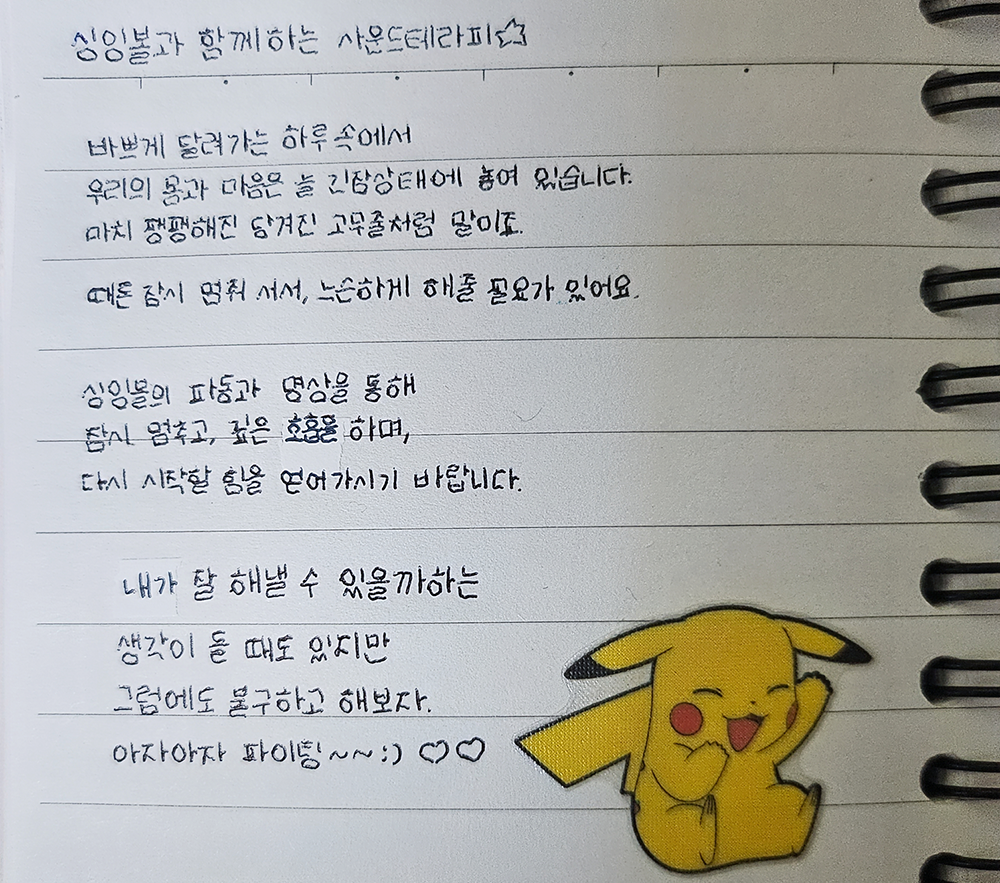 싱잉볼과 함께하는 사운드테라피☆
바쁘게 달려가는 하루 속에서
우리의 몸과 마음은 늘 긴장상태에 놓여 있습니다.
마치 팽팽해진 당겨진 고무줄처럼 말이죠.
때론 잠시 멈춰 서서, 느슨하게 해줄 필요가 있어요.
싱잉볼의 파동과 명상을 통해
잠시 멈추고, 깊은 호흡을 하며,
다시 시작할 힘을 얻어가시기 바랍니다.
내가 잘 해낼 수 있을까하는
생각이 들 때도 있지만
그럼에도 불구하고 해보자.
아자아자 파이팅~~:) ♡♡